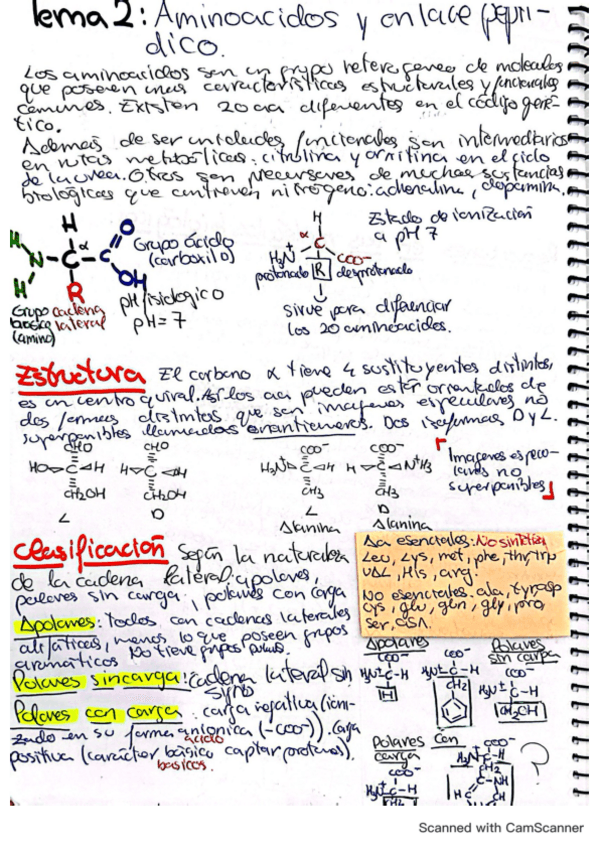 Tema 2: Aminoacidos y enlace pepti-
dico.
Los aminoacidos son un grupo heterogeneo de moleculas
que poseen unas caracteristicas estructurales y funcionales
comunes. Existen 20 aa diferentes en el código gené-
tico.
Además de ser unidades funcionales son intermediarios
en rutas metabólicas: citrulina y ornitina en el ciclo
de la urea. Otros son precursores de muchas sustancias
biológicas que contienen nitrógeno: adrenalina, dopamina.
H
H
N - C - C
α
O
OH
H
R
Grupo ácido
(carboxilo)
Grupo
básico
(amino)
cadena
lateral
pH fisiologico
pH = 7
H
α
H3N+ C COO-
protonado R desprotonado
Estado de ionización
a pH 7
sirve para diferenciar
los 20 aminoácidos.
Estructura El carbono α tiene 4 sustituyentes distintos,
es un centro quiral. Así los aa pueden estar orientados de
dos formas distintas que son imagenes especulares no
superponibles llamados enantiomeros. Dos isoformas D y L.
CHO
HO C H
CH2OH
L
CHO
H C OH
CH2OH
D
COO-
H3N+ C H
CH3
L
Alanina
COO-
H C N+H3
CH3
D
Alanina
Imagenes especu-
lares no
superponibles
Clasificación Según la naturaleza
de la cadena lateral: apolares,
polares sin carga, polares con carga
Apolares: Todos con cadenas laterales
alifáticas, menos lo que poseen grupos
aromáticos No tiene grupos polares.
Polares sin carga: cadena lateral sin
signo
Polares con carga: carga negativa (ioni-
zado en su forma anionica (-COO-)). Carga
ácido
positiva (carácter básico captar protones).
básicos.
Aa esenciales: No sintetiza
Leu, Lys, met, phe, thr, trp
val, His, arg.
No esenciales: ala, tyr, asp
cys, glu, gln, gly, pro,
ser, asn.
Apolares
COO-
H3N+ - C - H
H
COO-
H3N+ - C - H
CH2
Polares
sin carga
COO-
H3N+ - C - H
CH2OH
Polares con
carga
COO-
H3N+ - C - H
CH2
COO-
H3N+ C - H
CH2
C - NH
HC CH
?
Scanned with CamScanner